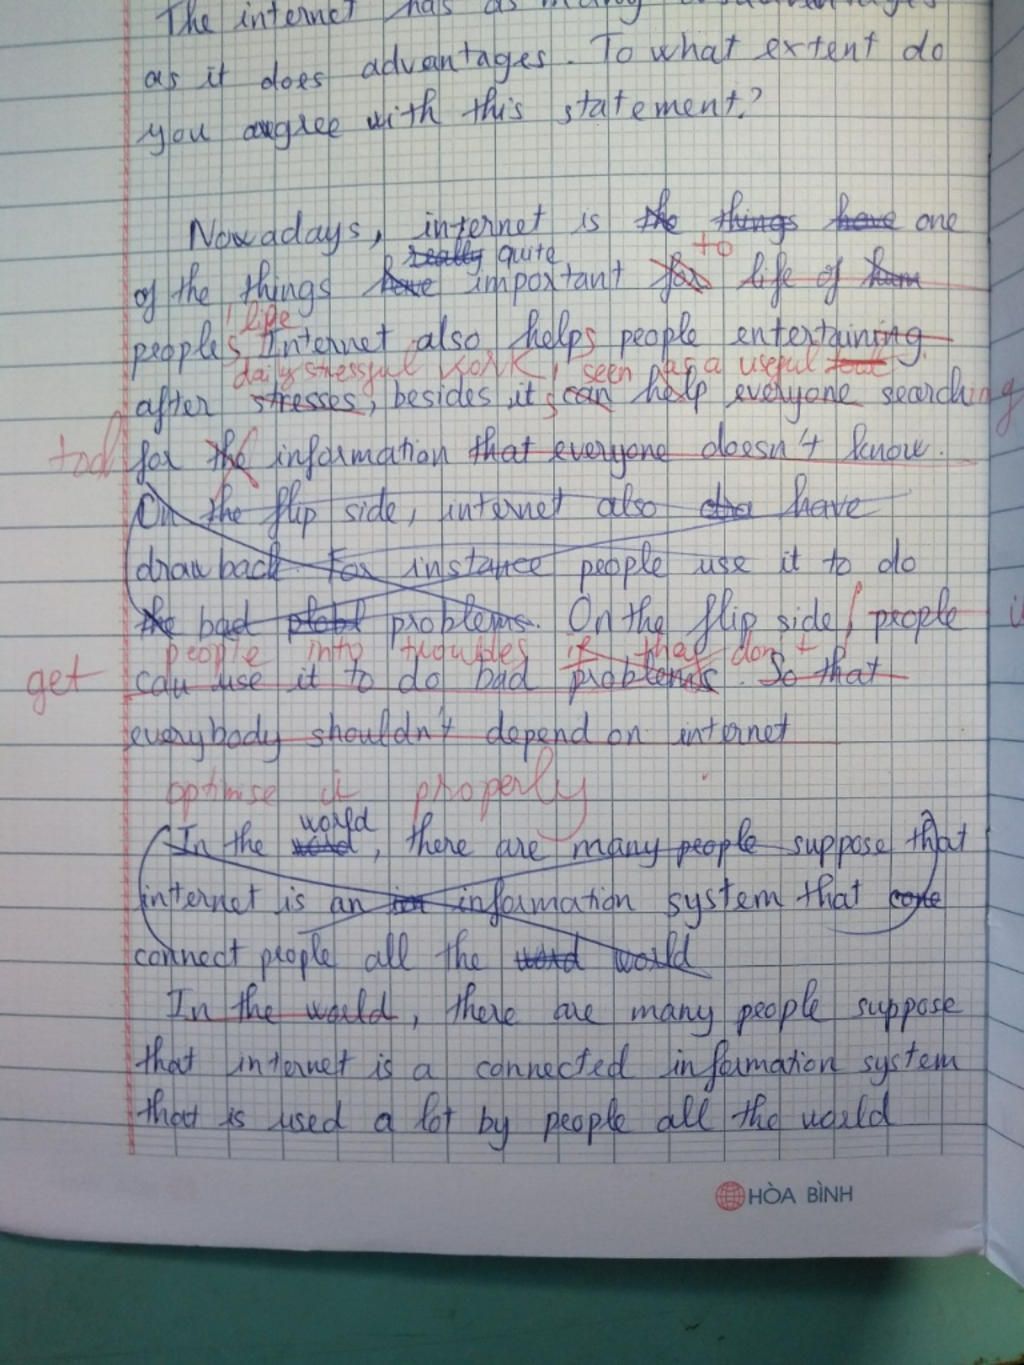 The internet has as many disadvantages
as it does advantages. To what extent do
you agree with this statement?
Nowadays, internet is the things have one
really quite to
of the things have important for life of hum
life
people's Internet also helps people entertaining
daily stressful work, seen as a useful tool
after stresses, besides it can help everyone searching
tool for the information that everyone doesn't know.
On the flip side, internet also have
drawback. For instance people use it to do
the bad problems. On the flip side, people
people into troubles if that don't
get can use it to do bad problems. So that
everybody shouldn't depend on internet
optimise it properly
world
In the word, there are many people suppose that
internet is an information system that cone
connect people all the word world
In the world, there are many people suppose
that internet is a connected information system
that is used a lot by people all the world
HÒA BÌNH